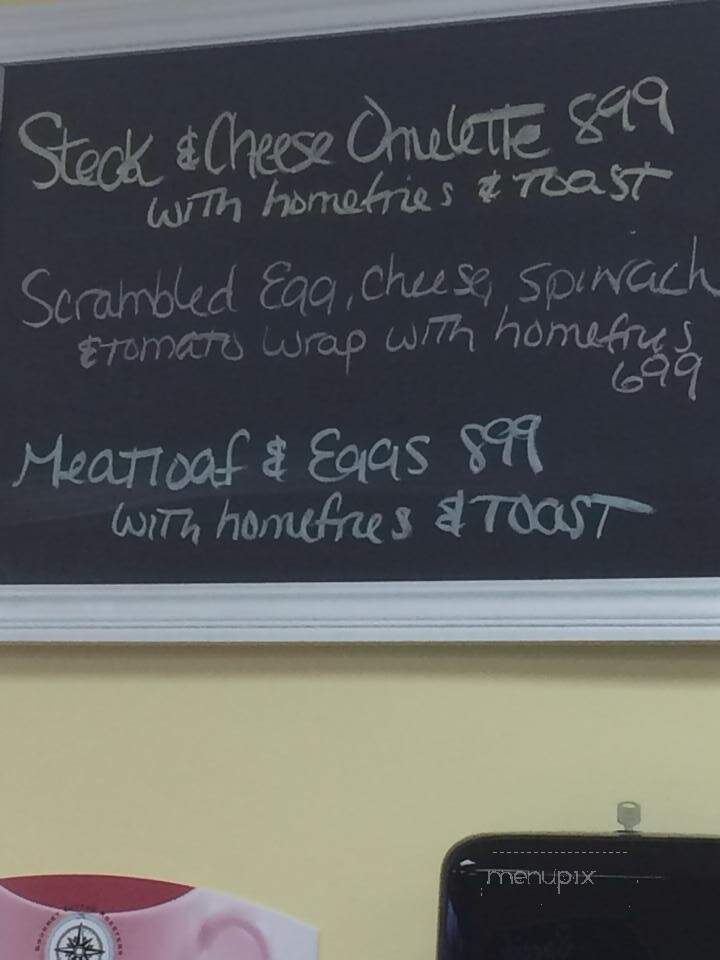 Steak & Cheese Omelette 899
with homefries & Toast
Scrambled Egg, cheese, spinach
& tomato wrap with homefries
699
Meatloaf & Eggs 899
with homefries & Toast
menupix